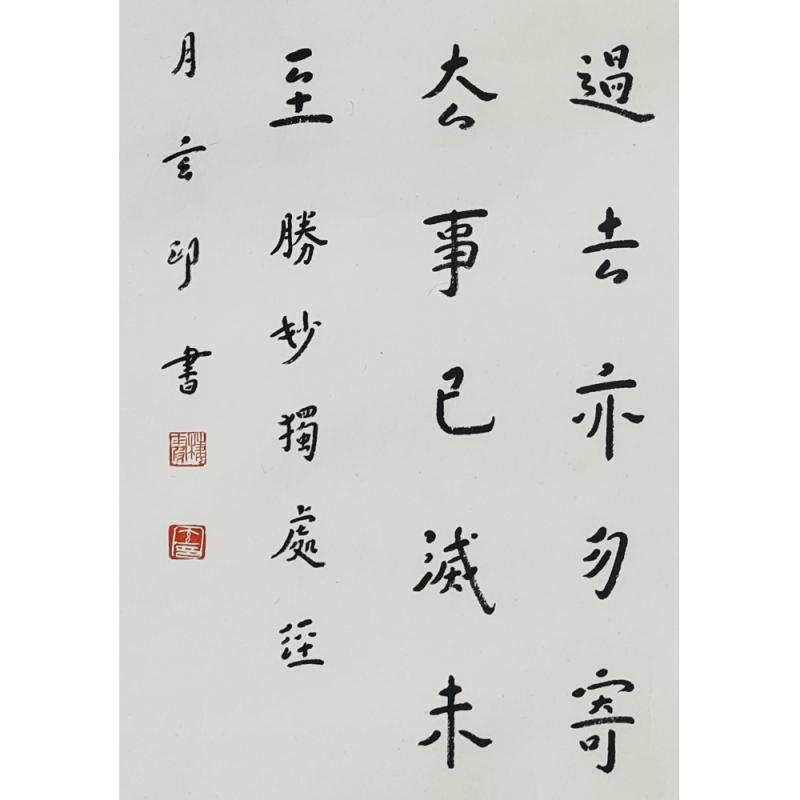 過去亦勿寄
厺事已滅未
至 勝妙獨處經
月玄印書